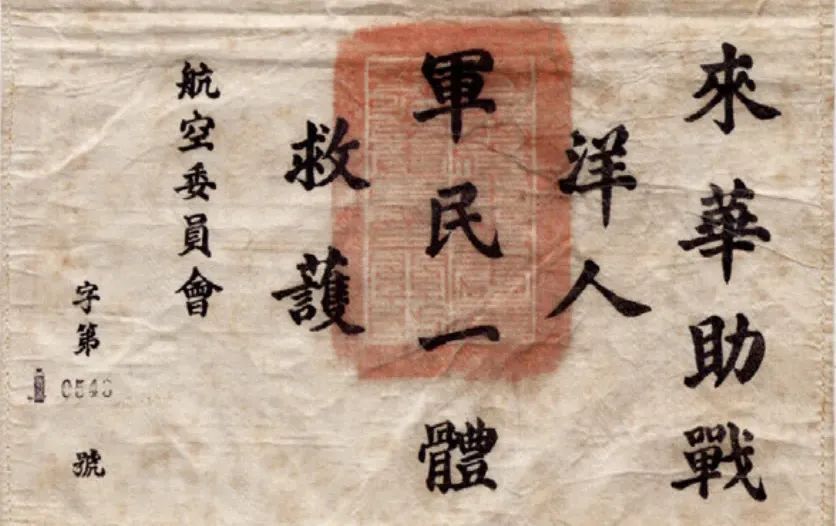 來華助戰
洋人
軍民一體
救護
航空委員會
字第
0543
號